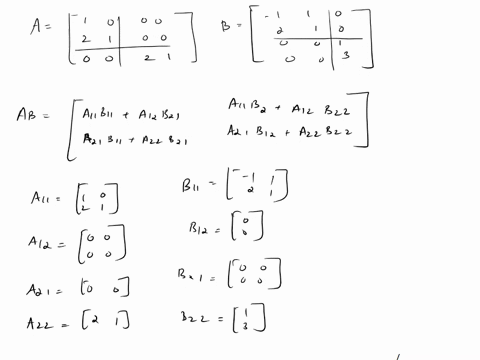 A = [ 1 0 | 0 0 B = [ -1 1 | 0
2 1 | 0 0 2 1 | 0
0 0 | 2 1 ] 0 0 | 1
0 0 | 3 ]
AB = [ A11 B11 + A12 B21 A11 B2 + A12 B22
A21 B11 + A22 B21 A21 B12 + A22 B22 ]
A11 = [ 1 0 B11 = [ -1 1
2 1 ] 2 1 ]
A12 = [ 0 0 B12 = [ 0
0 0 ] 0 ]
A21 = [ 0 0 ] B21 = [ 0 0
0 0 ]
A22 = [ 2 1 ] B22 = [ 1
3 ]